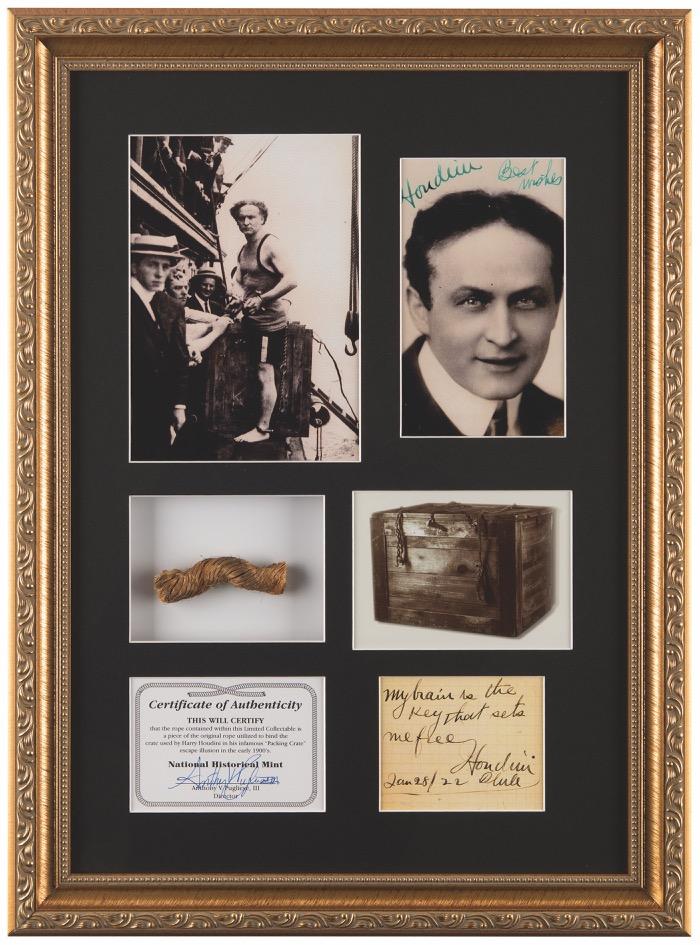 Houdini
Best
wishes
Certificate of Authenticity
THIS WILL CERTIFY
that the rope contained within this Limited Collectable is
a piece of the original rope utilized to bind the
crate used by Harry Houdini in his infamous "Packing Crate"
escape illusion in the early 1900's.
National Historical Mint
Anthony V. Pugliese, III
Director
My brain is the
key that sets
me free
Houdini
Jan 28/22